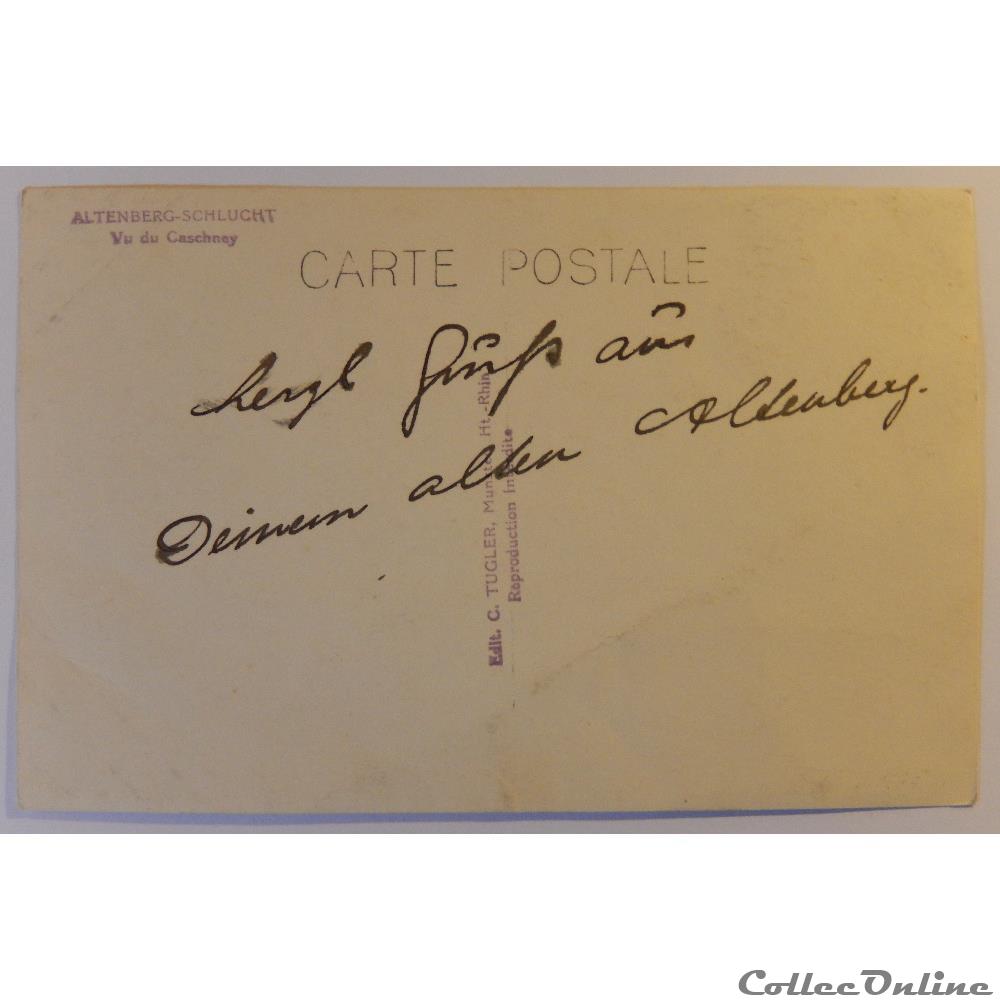 ALTENBERG-SCHLUCHT
Vu du Gaschney
CARTE POSTALE
herzl Gruß aus
Deinem alten Altenberg.
Edit. C. TUGLER, Munster Ht.-Rhin
Reproduction Interdite
CollecOnline